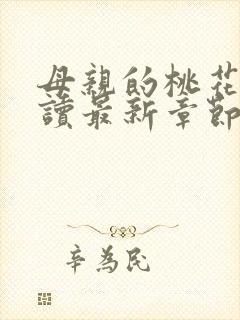 母親的桃花
讀最新章節
辛為民